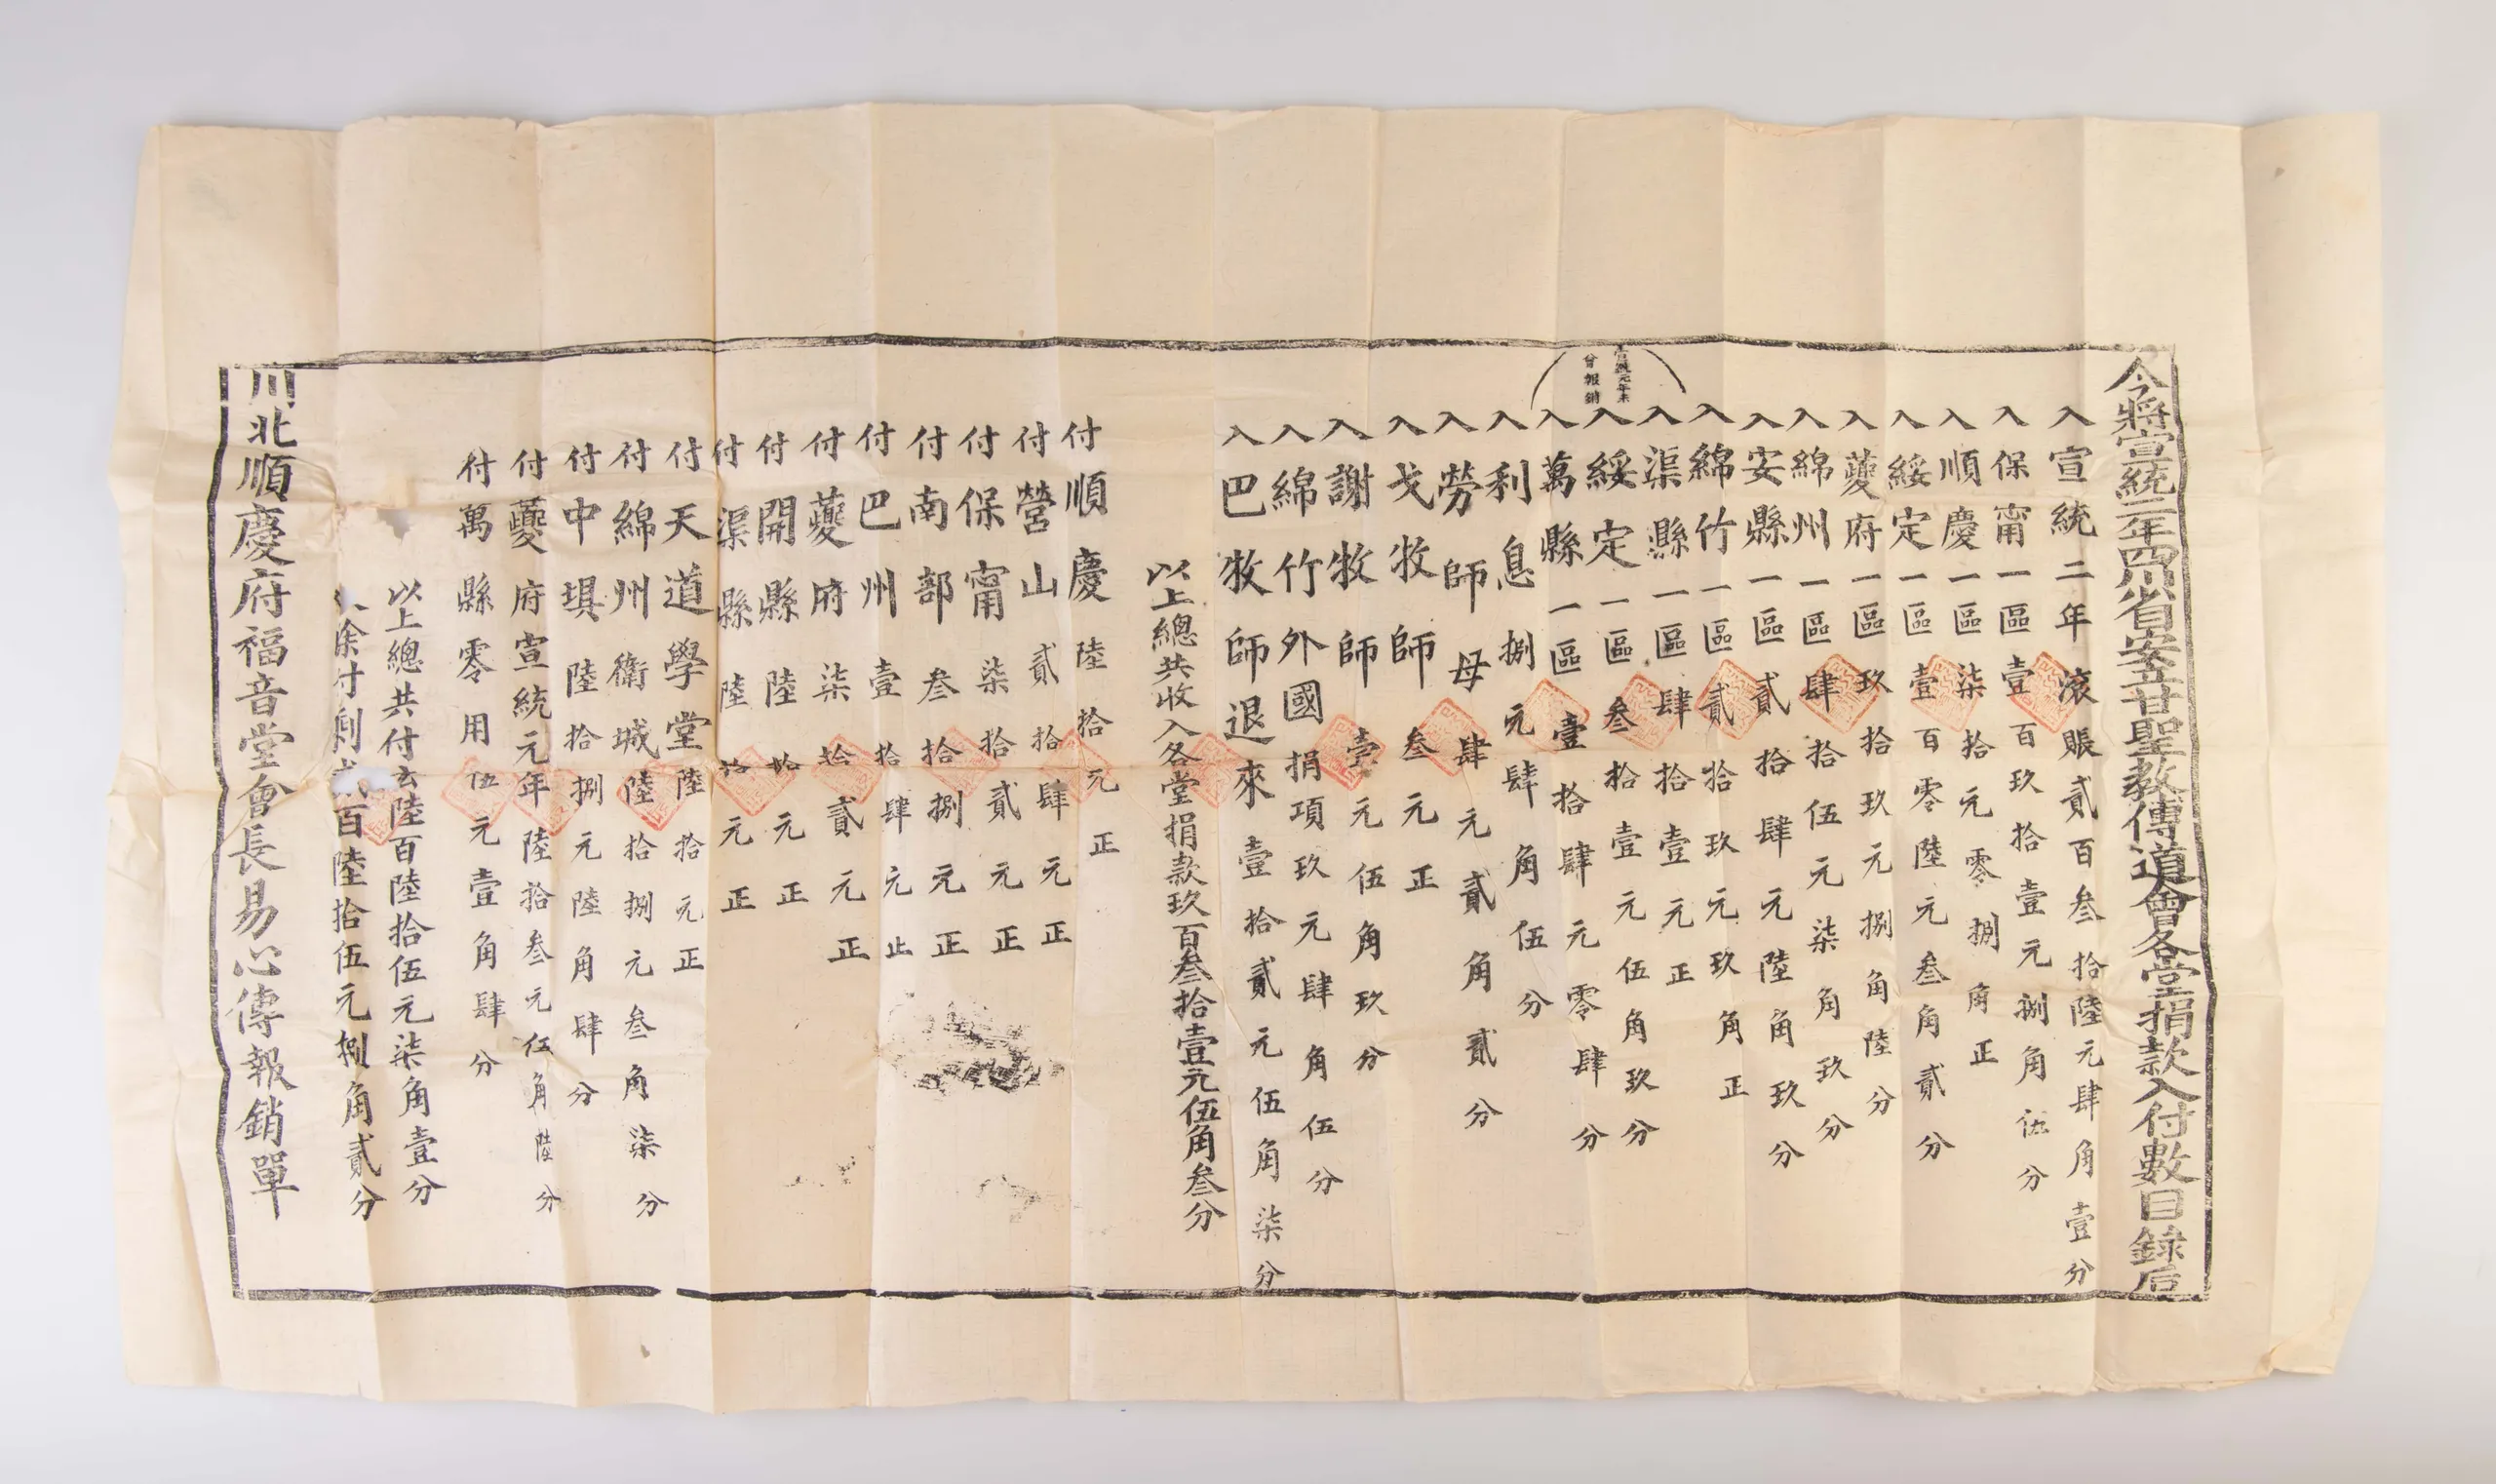 今將宣統二年四川省安立甘聖教傳道會各堂捐款入付數目錄后
入宣統二年滾賬貳百叁拾陸元肆角壹分
入保甯一區壹百玖拾壹元捌角伍分
入順慶一區柒拾元零捌角正
入綏定一區壹百零陸元叁角貳分
入夔府一區玖拾玖元捌角陸分
入綿州一區肆拾伍元柒角玖分
入安縣一區貳拾肆元陸角玖分
入綿竹一區貳拾玖元玖角正
宣統元年未
會報銷
入渠縣一區肆拾壹元正
入綏定一區叁拾壹元伍角玖分
入萬縣一區壹拾肆元零肆分
入利息捌元肆角伍分
入勞師母肆元貳角貳分
入戈牧師叁元正
入謝牧師壹元伍角玖分
入綿竹外國捐項玖元肆角伍分
入巴牧師退來壹拾貳元伍角柒分
以上總共收入各堂捐款玖百叁拾壹元伍角叁分
付順慶陸拾元正
付營山貳拾肆元正
付保甯柒拾貳元正
付南部叁拾捌元正
付巴州壹拾肆元正
付夔府柒拾貳元正
付開縣陸拾元正
付渠縣陸拾元正
付天道學堂陸拾元正
付綿州衛城陸拾捌元叁角柒分
付中埧陸拾捌元陸角肆分
付夔府宣統元年陸拾叁元伍角陸分
付萬縣零用伍元壹角肆分
以上總共付去陸百陸拾伍元柒角壹分
余付剩百陸拾伍元捌角貳分
川北順慶府福音堂會長易心傳報銷單